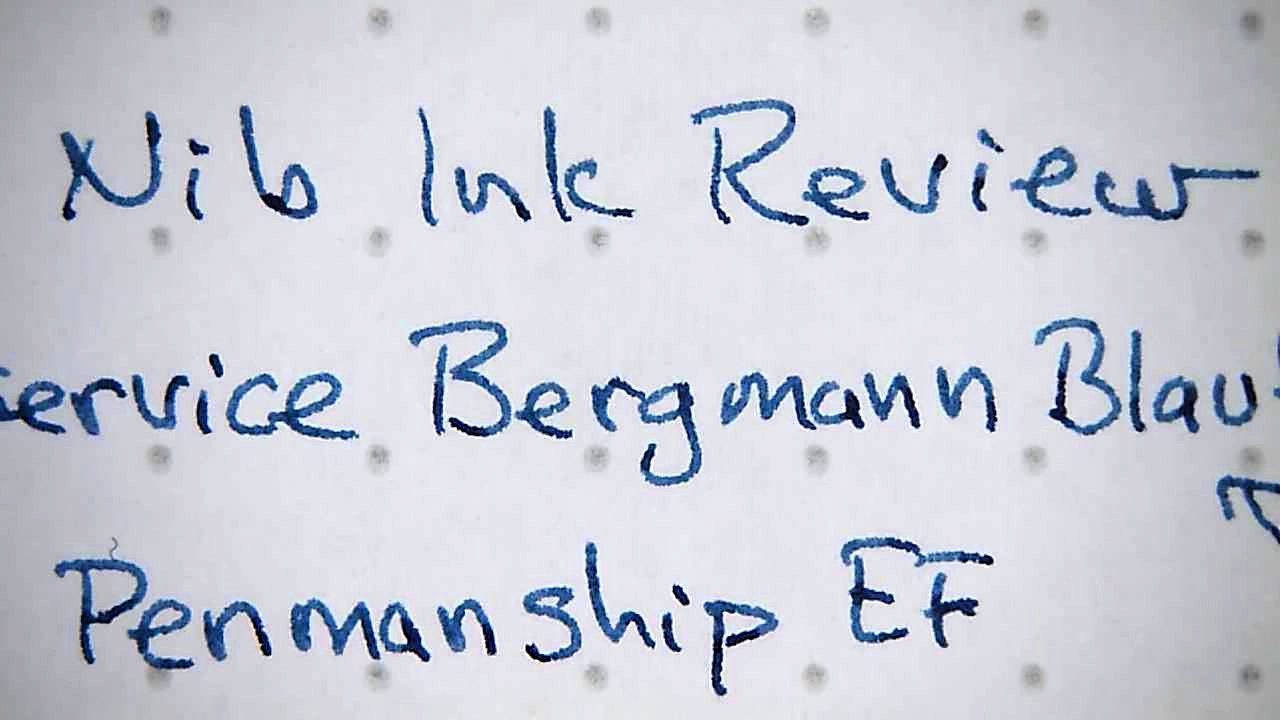 Nib Ink Review
service Bergmann Blau
Penmanship EF